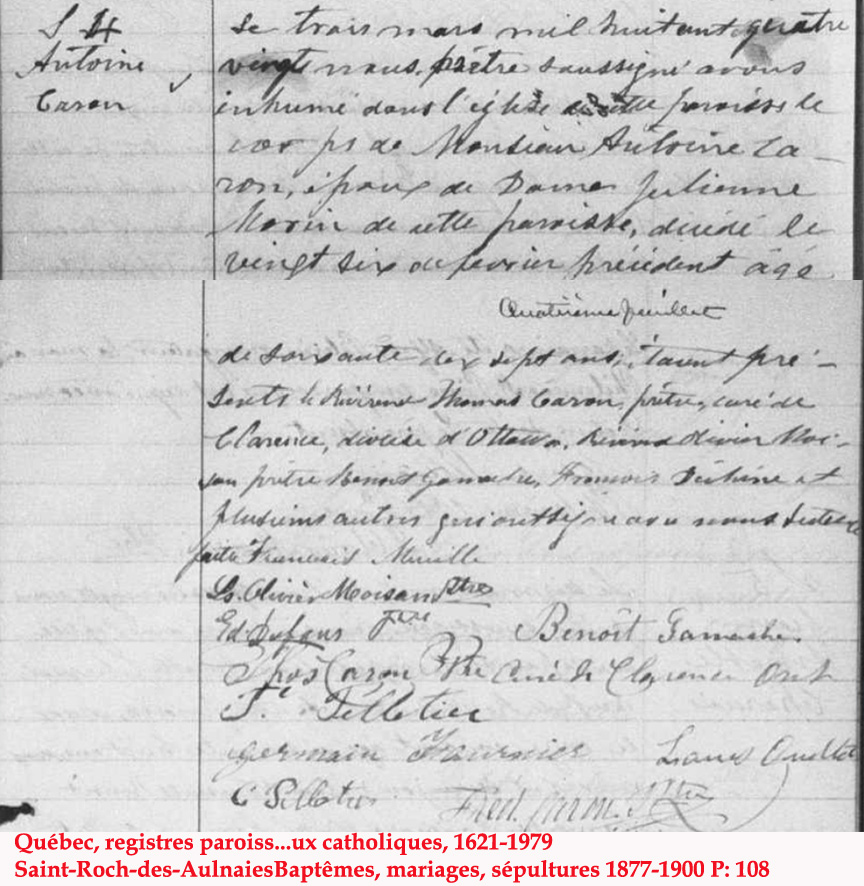 S 4
Antoine
Caron
Le trois mars mil huit cent quatre
vingt nous, prêtre soussigné avons
inhumé dans l'église de cette paroisse le
corps de Monsieur Antoine Ca-
ron, époux de Dame Julienne
Morin de cette paroisse, décédé le
vingt six de février précédent âgé
Quatrième feuillet
de soixante dix sept ans, étaient pré-
sents le Révérend Thomas Caron, prêtre, curé de
Clarence, diocèse d'Ottawa, Révérend Olivier Moi-
san prêtre Benoit Gamache, François Dechêne et
plusieurs autres qui ont signé avec nous lecture
faite François Miville
Ls. Olivier Moisan Ptre
Ed. Dufour Ptre Benoît Gamache.
Thos Caron Ptre Curé de Clarence Ont
F. Pelletier
Germain Fournier Ouellet
C Pelletier
Fred. Caron Ptre
Québec, registres paroiss...ux catholiques, 1621-1979
Saint-Roch-des-AulnaiesBaptêmes, mariages, sépultures 1877-1900 P: 108